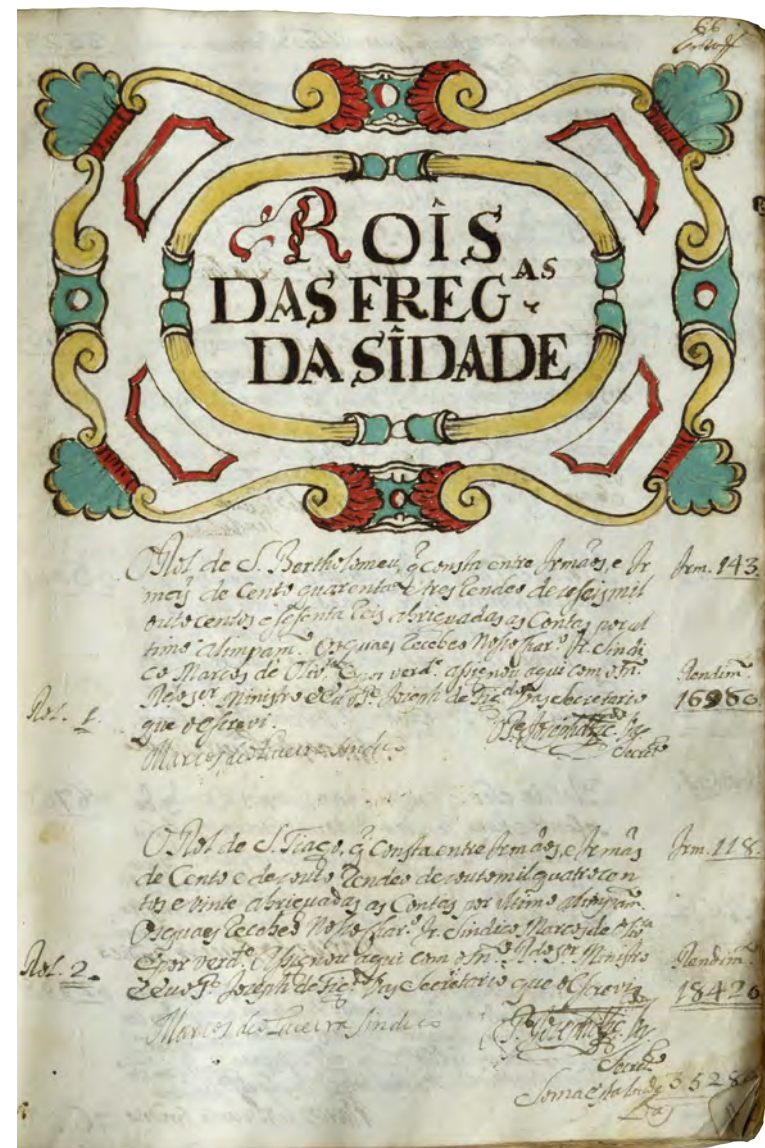 66
ROîS
DAS FREG.AS
DA SÎDADE
O Rol de S. Bertholomeu, q̃ consta entre Irmãos, e Ir
mãs de Cento quarenta e tres Rendeo dezaseis mil
outo centos e sesenta reis abriguadas as Contas por ul
timo alimpam.º Os quaes Recebeo Nosso Char.º Ir. Sindi
co Marcos de Oliv.ª E por verd.e asignou aqui com o N.
Ministro e Eu P.e Joseph de Fig.do Secretario
que o escrevi.
Irm. 143.
Rendim.to
Rol. 1.
Marcos de Sindico
Secret.º
O Rol de S. Tiago, q̃ Consta entre Irmãos, e Irmãs
de Cento e dezouto Rendeo dezoutomil quatrocen
tos e vinte abriguadas as Contas por ultimo alimpam.º
Os quaes Recebeo Nosso Char.º Ir. Sindico Marcos de Oliv.ª
E por verd.e Asignou aqui com o N. Ministro
E Eu P.e Joseph de Fig.do Secretario que o Escrevi
Irm. 118.
Rendim.to
18420
Rol. 2.
Marcos de Sindico
Secret.º
Soma esta lauda 35280